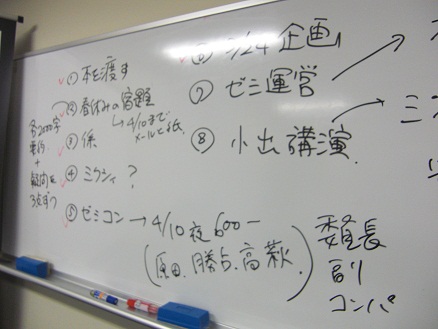 ① 本を渡す
② 春休みの宿題
↳ 4/10まで
③ 係
④ ミクシィ?
⑤ ゼミコン → 4/10 夜 600ー
(原田、勝占、高萩、)
各2000字
要約
+
疑問を
3点ずつ
⑥ 3/24 企画
⑦ ゼミ運営
⑧ 小出講演
委員長
副り
コンパ